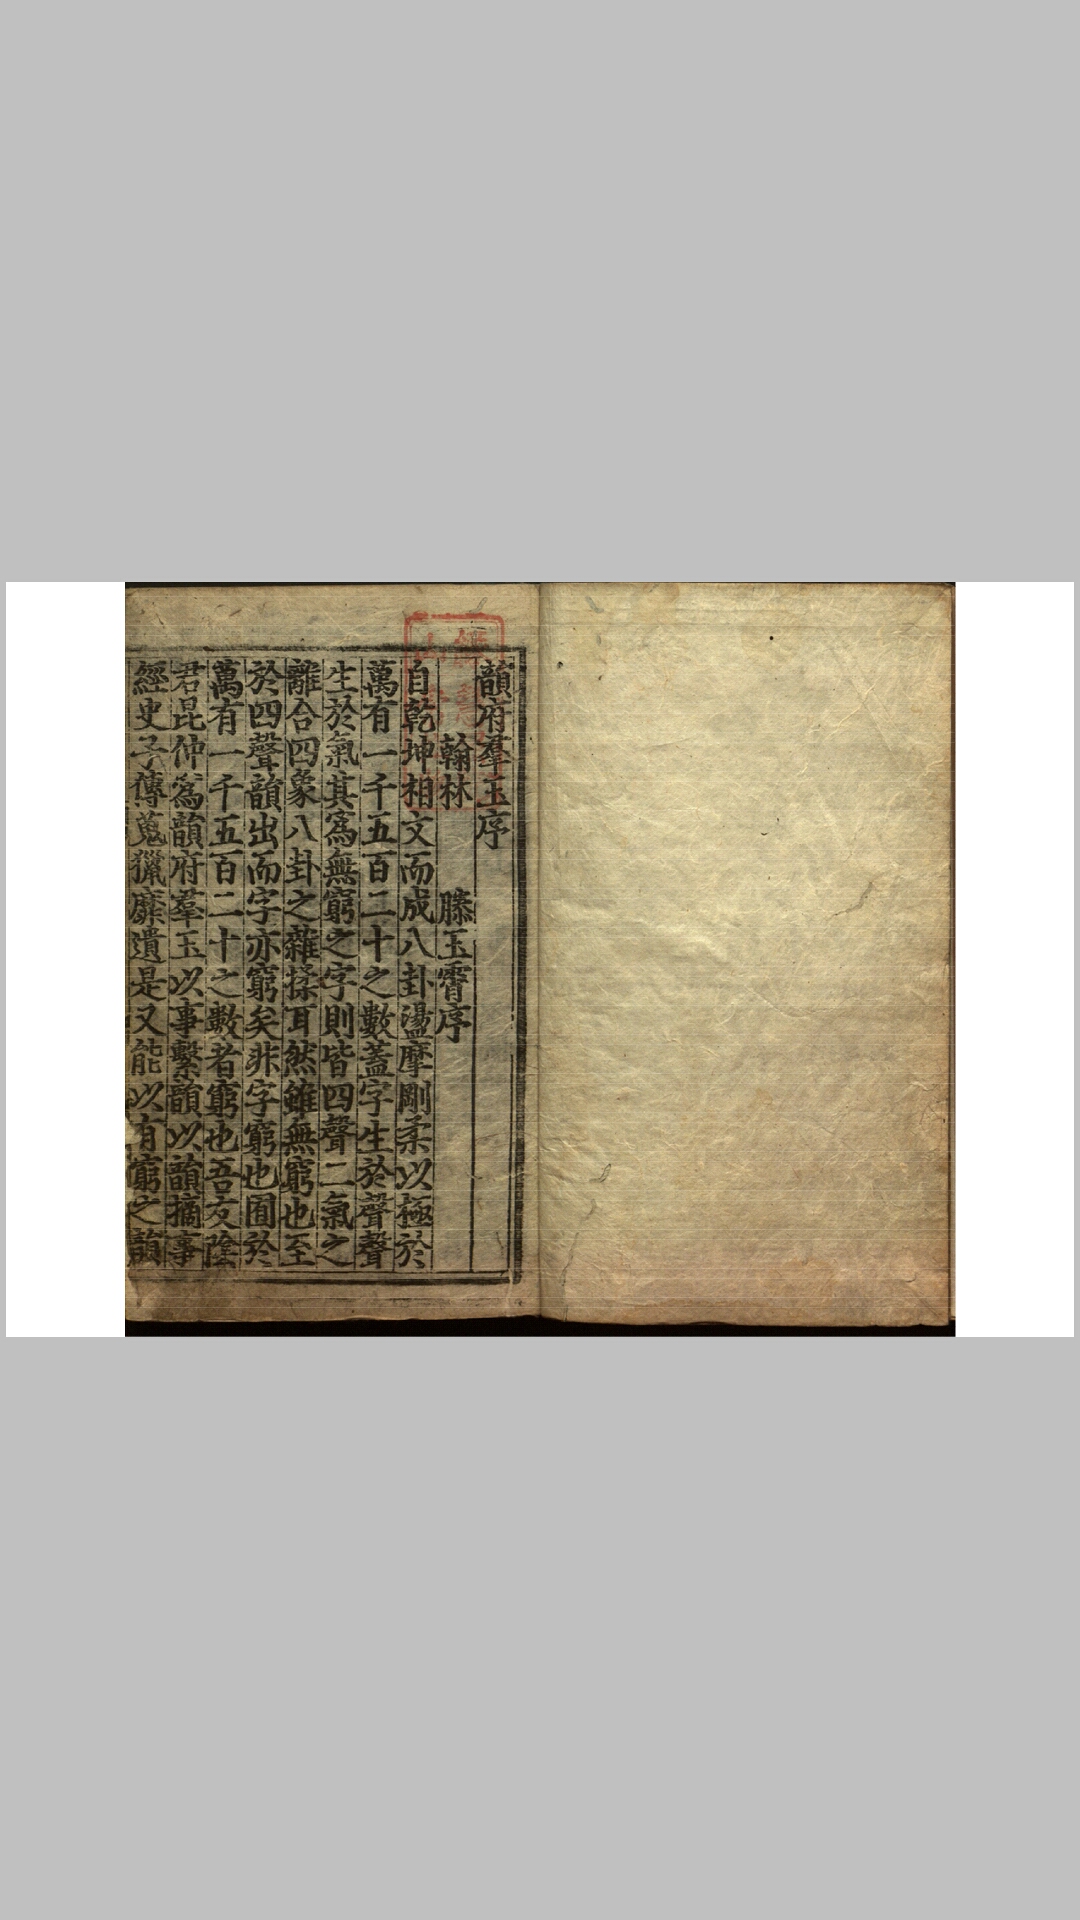 韻府羣玉序
翰林 滕玉霄序
自乾坤相文而成八卦盪摩剛柔以極於
萬有一千五百二十之數蓋字生於聲聲
生於氣其爲無窮之字則皆四聲二氣之
離合四象八卦之雜揉耳然雖無窮也至
於四聲韻出而字亦窮矣非字窮也囿於
萬有一千五百二十之數者窮也吾友陰
君昆仲爲韻府羣玉以事繫韻以韻摘事
經史子傳蒐獵靡遺是又能以有窮之韻